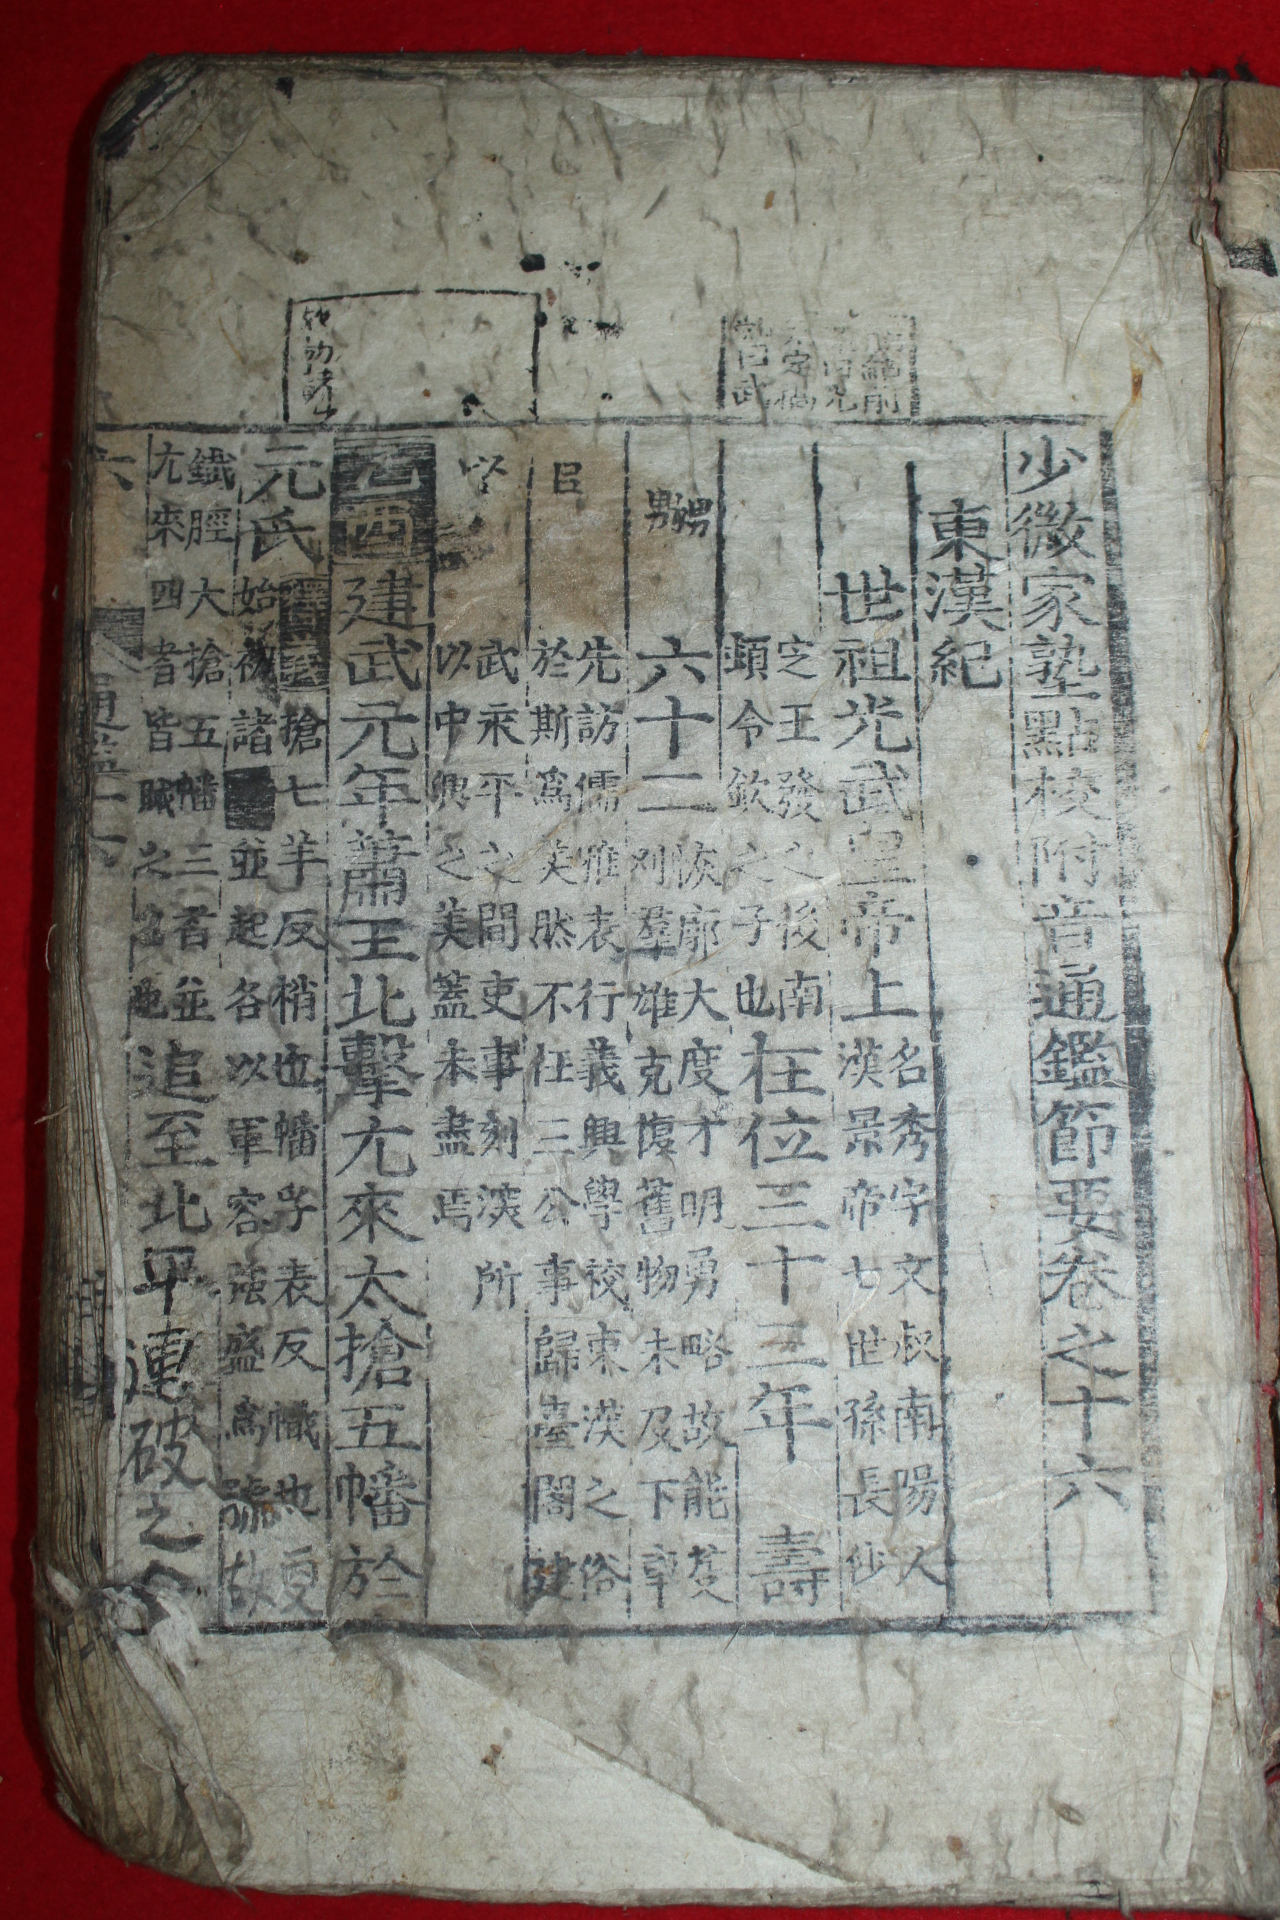 少微家塾點校附音通鑑節要卷之十六
東漢紀
世祖光武皇帝上 名秀字文叔南陽人
漢景帝七世孫長沙
定王發之後南
頓令欽之子也 在位三十三年 壽
六十二 恢廓大度才明勇略故能芟
刈羣雄克復舊物未及下車
先訪儒雅表行義興學校東漢之俗
於斯爲美然不任三公事歸臺閣建
武永平之間吏事刻深所
以中興之美蓋未盡焉
乙酉建武元年蕭王北擊尤來大搶五幡於
元氏 搶七羊反梢也幡孚表反幟也夏
始初諸 並起各以軍容强盛爲號故
鐵脛大搶五幡三者並
尤來四者皆賊之名也 追至北平連破之